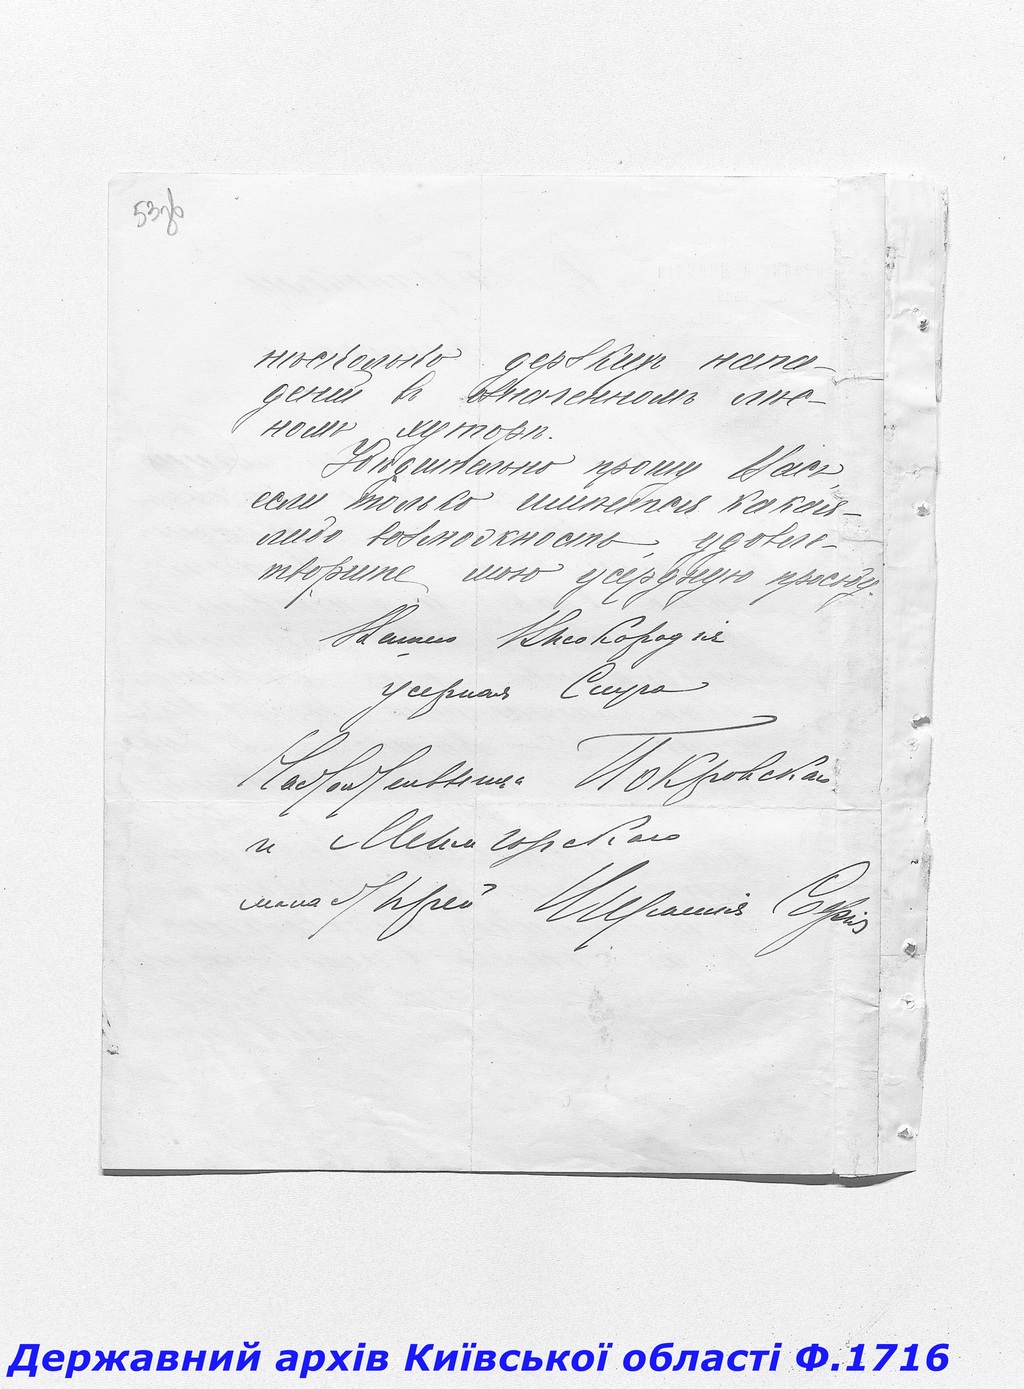 53об
нѣсколько дерзкихъ напа-
деній въ означенномъ лѣс-
номъ хуторѣ.
Убѣдительно прошу Васъ,
если только имѣется какая-
либо возможность, удовле-
творите мою усердную просьбу.
Вашего Высокородія
усердная Слуга
Настоятельница Покровскаго
и Межигорскаго
монастырей Игуменія Софія
Державний архів Київської області Ф.1716